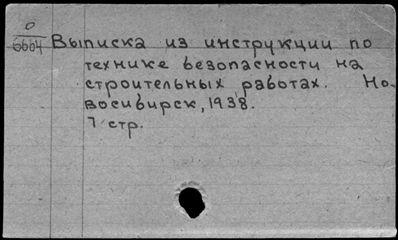 0
6664
Выписка из инструкции по
технике безопасности на
строительных работах. Но-
восибирск, 1938.
7 стр.